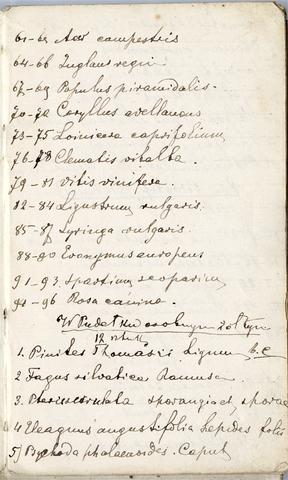 61-63 Acer campestris
64-66 Juglans regia
67-69 Populus piramidalis.
70-72 Coryllus avellanous
73-75 Loinicera caprifolium
76-78 Clematis vitalba.
79-81 Vitis vinifera.
82-84 Ligustrum vulgaris.
85-87 Syringa vulgaris.
88-90 Evonymus europeus
91-93 Spartium scoparium
94-96 Rosa canina.
W Pudełku osobnym żółtym
12 sztuk
1. Pinites Thomasis Lignum, b.c
2 Fagus silvatica Ramus.
3. sporangia et, sporae
4 Eleagnus angustifolia Lepides folis
5) Bychoda phalaenoides. Caput